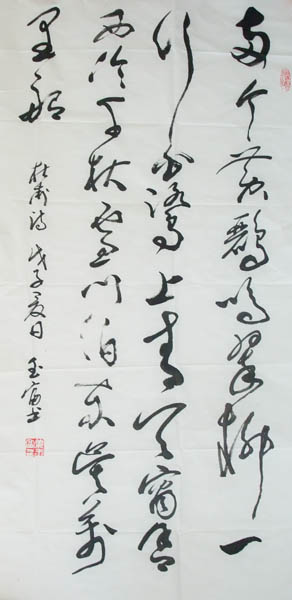 两个黄鹂鸣翠柳一
行白鹭上青天窗含
西岭千秋雪门泊东吴万
里船
杜甫诗 戊子夏日 玉富书